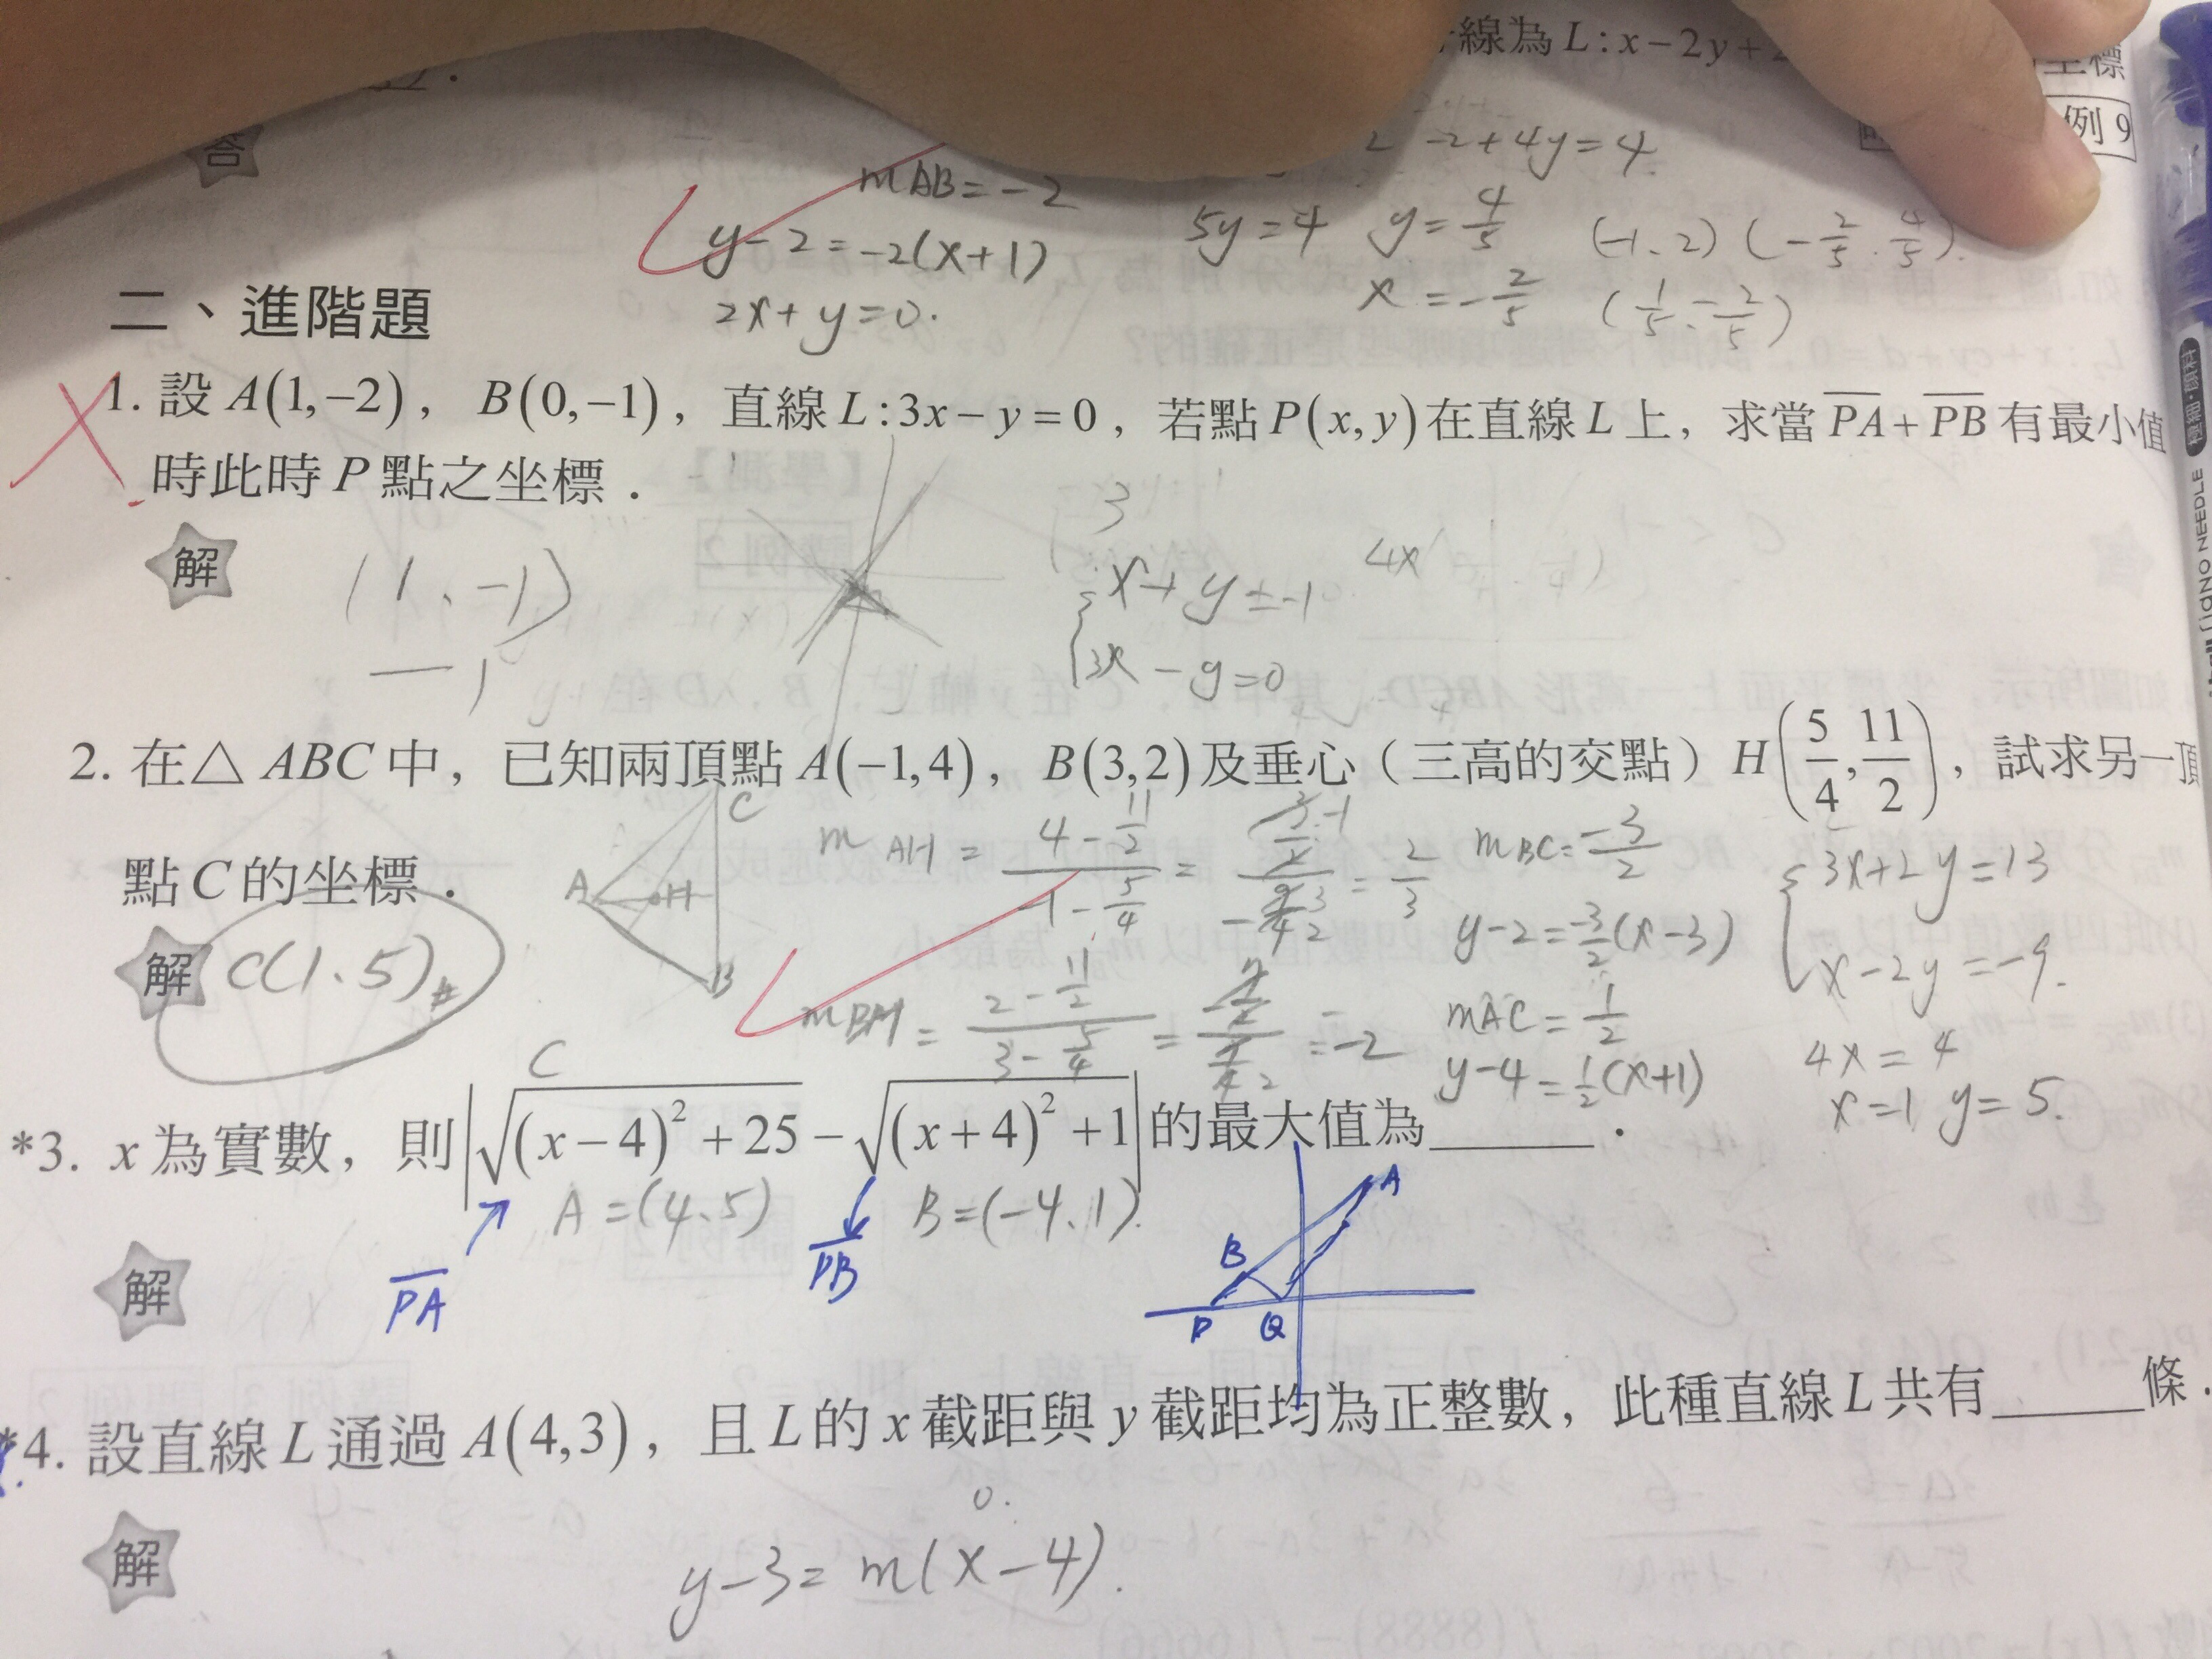 線為 L:x-2y+
坐標
答
例 9
2 -2+4y=4
mAB=-2
y-2=-2(x+1)
2x+y=0.
5y=4 y=4/5
x=-2/5
(-1、2) (-2/5、4/5)
(1/5、-2/5)
二、進階題
1. 設 A(1,-2), B(0,-1), 直線 L:3x-y=0, 若點 P(x,y) 在直線 L 上, 求當 PA+PB 有最小值
時此時 P 點之坐標.
解
(1、-1)
3
x+y=-1
3x-y=0
4x
2. 在△ABC 中, 已知兩頂點 A(-1,4), B(3,2) 及垂心(三高的交點) H(5/4, 11/2), 試求另一頂
點 C 的坐標.
解 C(1、5)#
C
A H
B
mAH = (4-11/2)/(-1-5/4) = = 2/3
mBH = (2-11/2)/(3-5/4) = = -2
mBC=-3/2
y-2=-3/2(x-3)
mAC=1/2
y-4=1/2(x+1)
3x+2y=13
x-2y=-9.
4x=4
x=1 y=5.
C
*3. x 為實數, 則 |√((x-4)²+25) - √((x+4)²+1)| 的最大值為______.
A=(4、5)
B=(-4、1).
PA
PB
解
A
B
P Q
*4. 設直線 L 通過 A(4,3), 且 L 的 x 截距與 y 截距均為正整數, 此種直線 L 共有______條.
解
0.
y-3=m(x-4).
NEEDLE